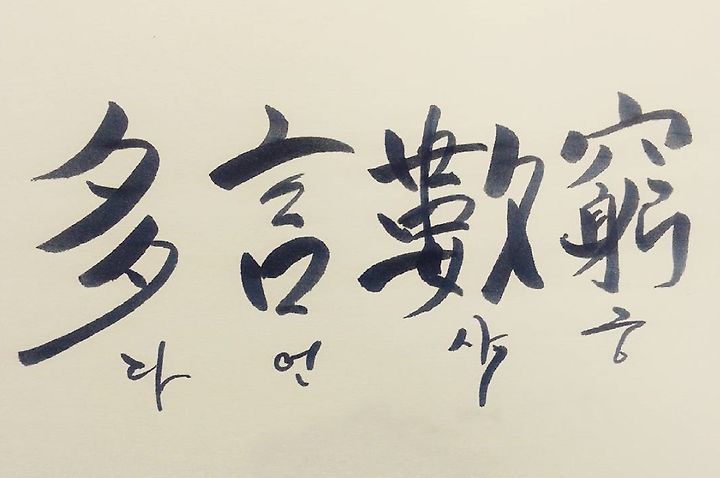 多言數窮
다언삭궁